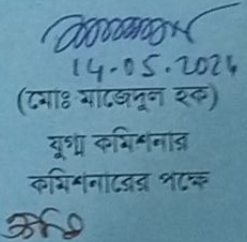 14-05-2024
(মোঃ মাজেদুল হক)
যুগ্ম কমিশনার
কমিশনারের পক্ষে